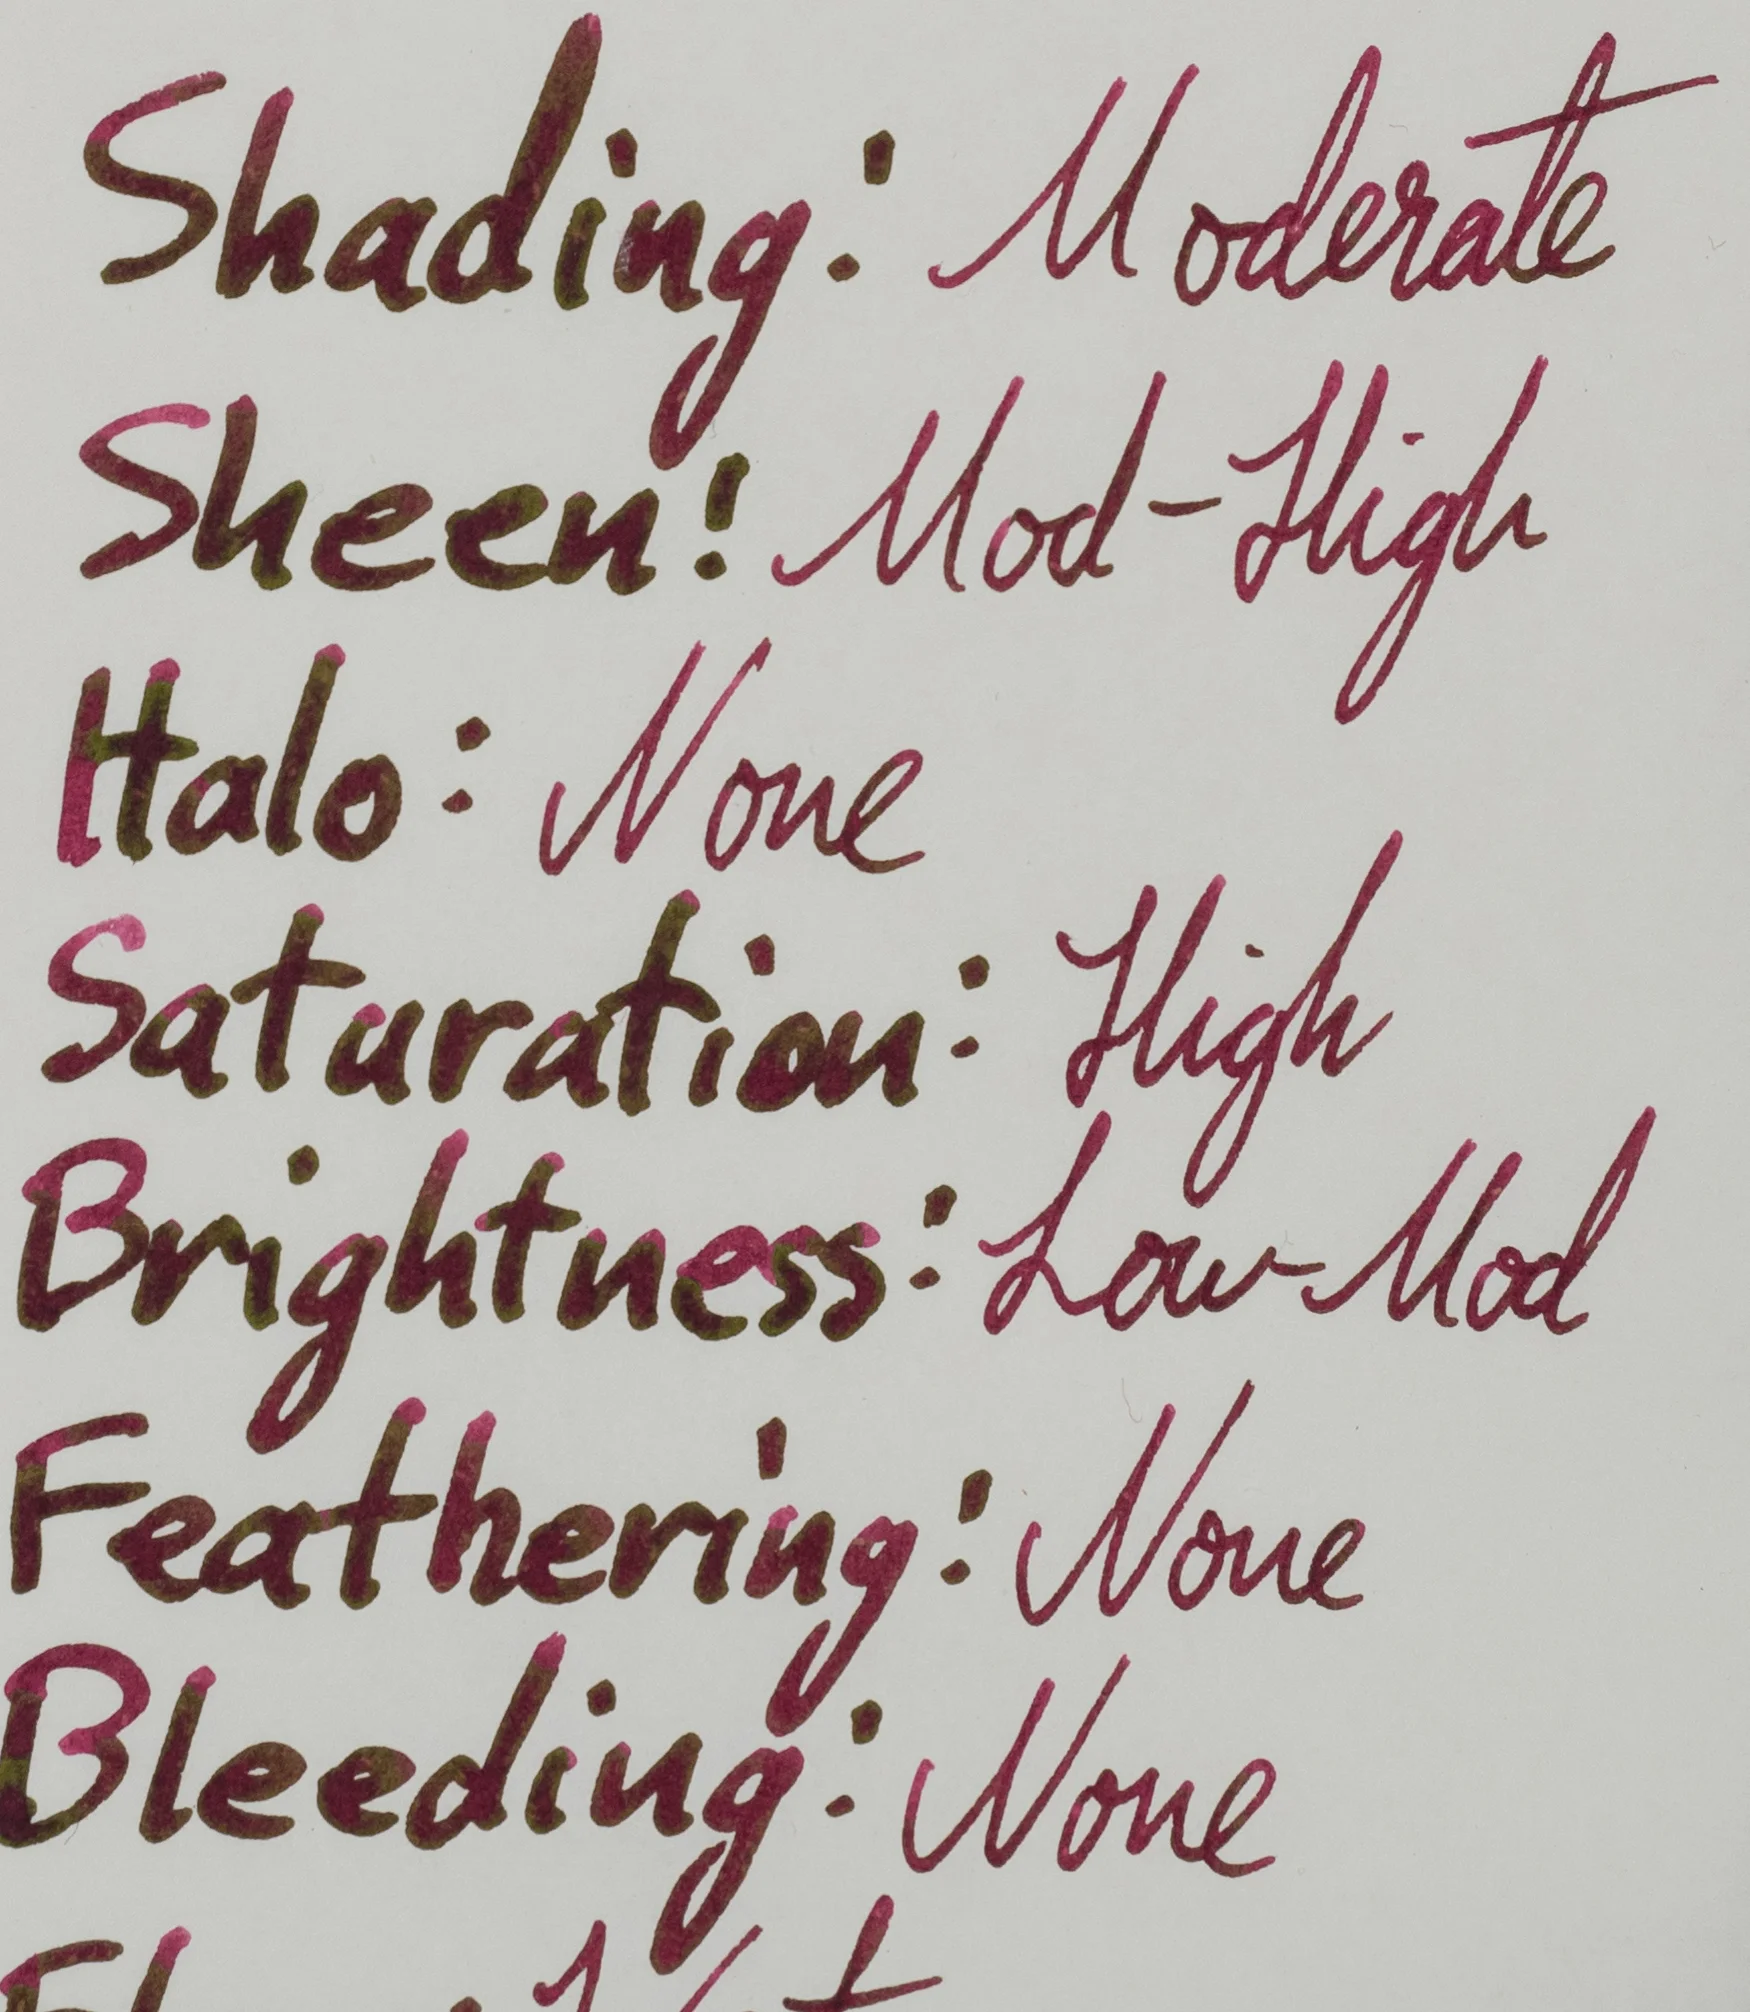 Shading: Moderate
Sheen: Mod-High
Halo: None
Saturation: High
Brightness: Low-Mod
Feathering: None
Bleeding: None